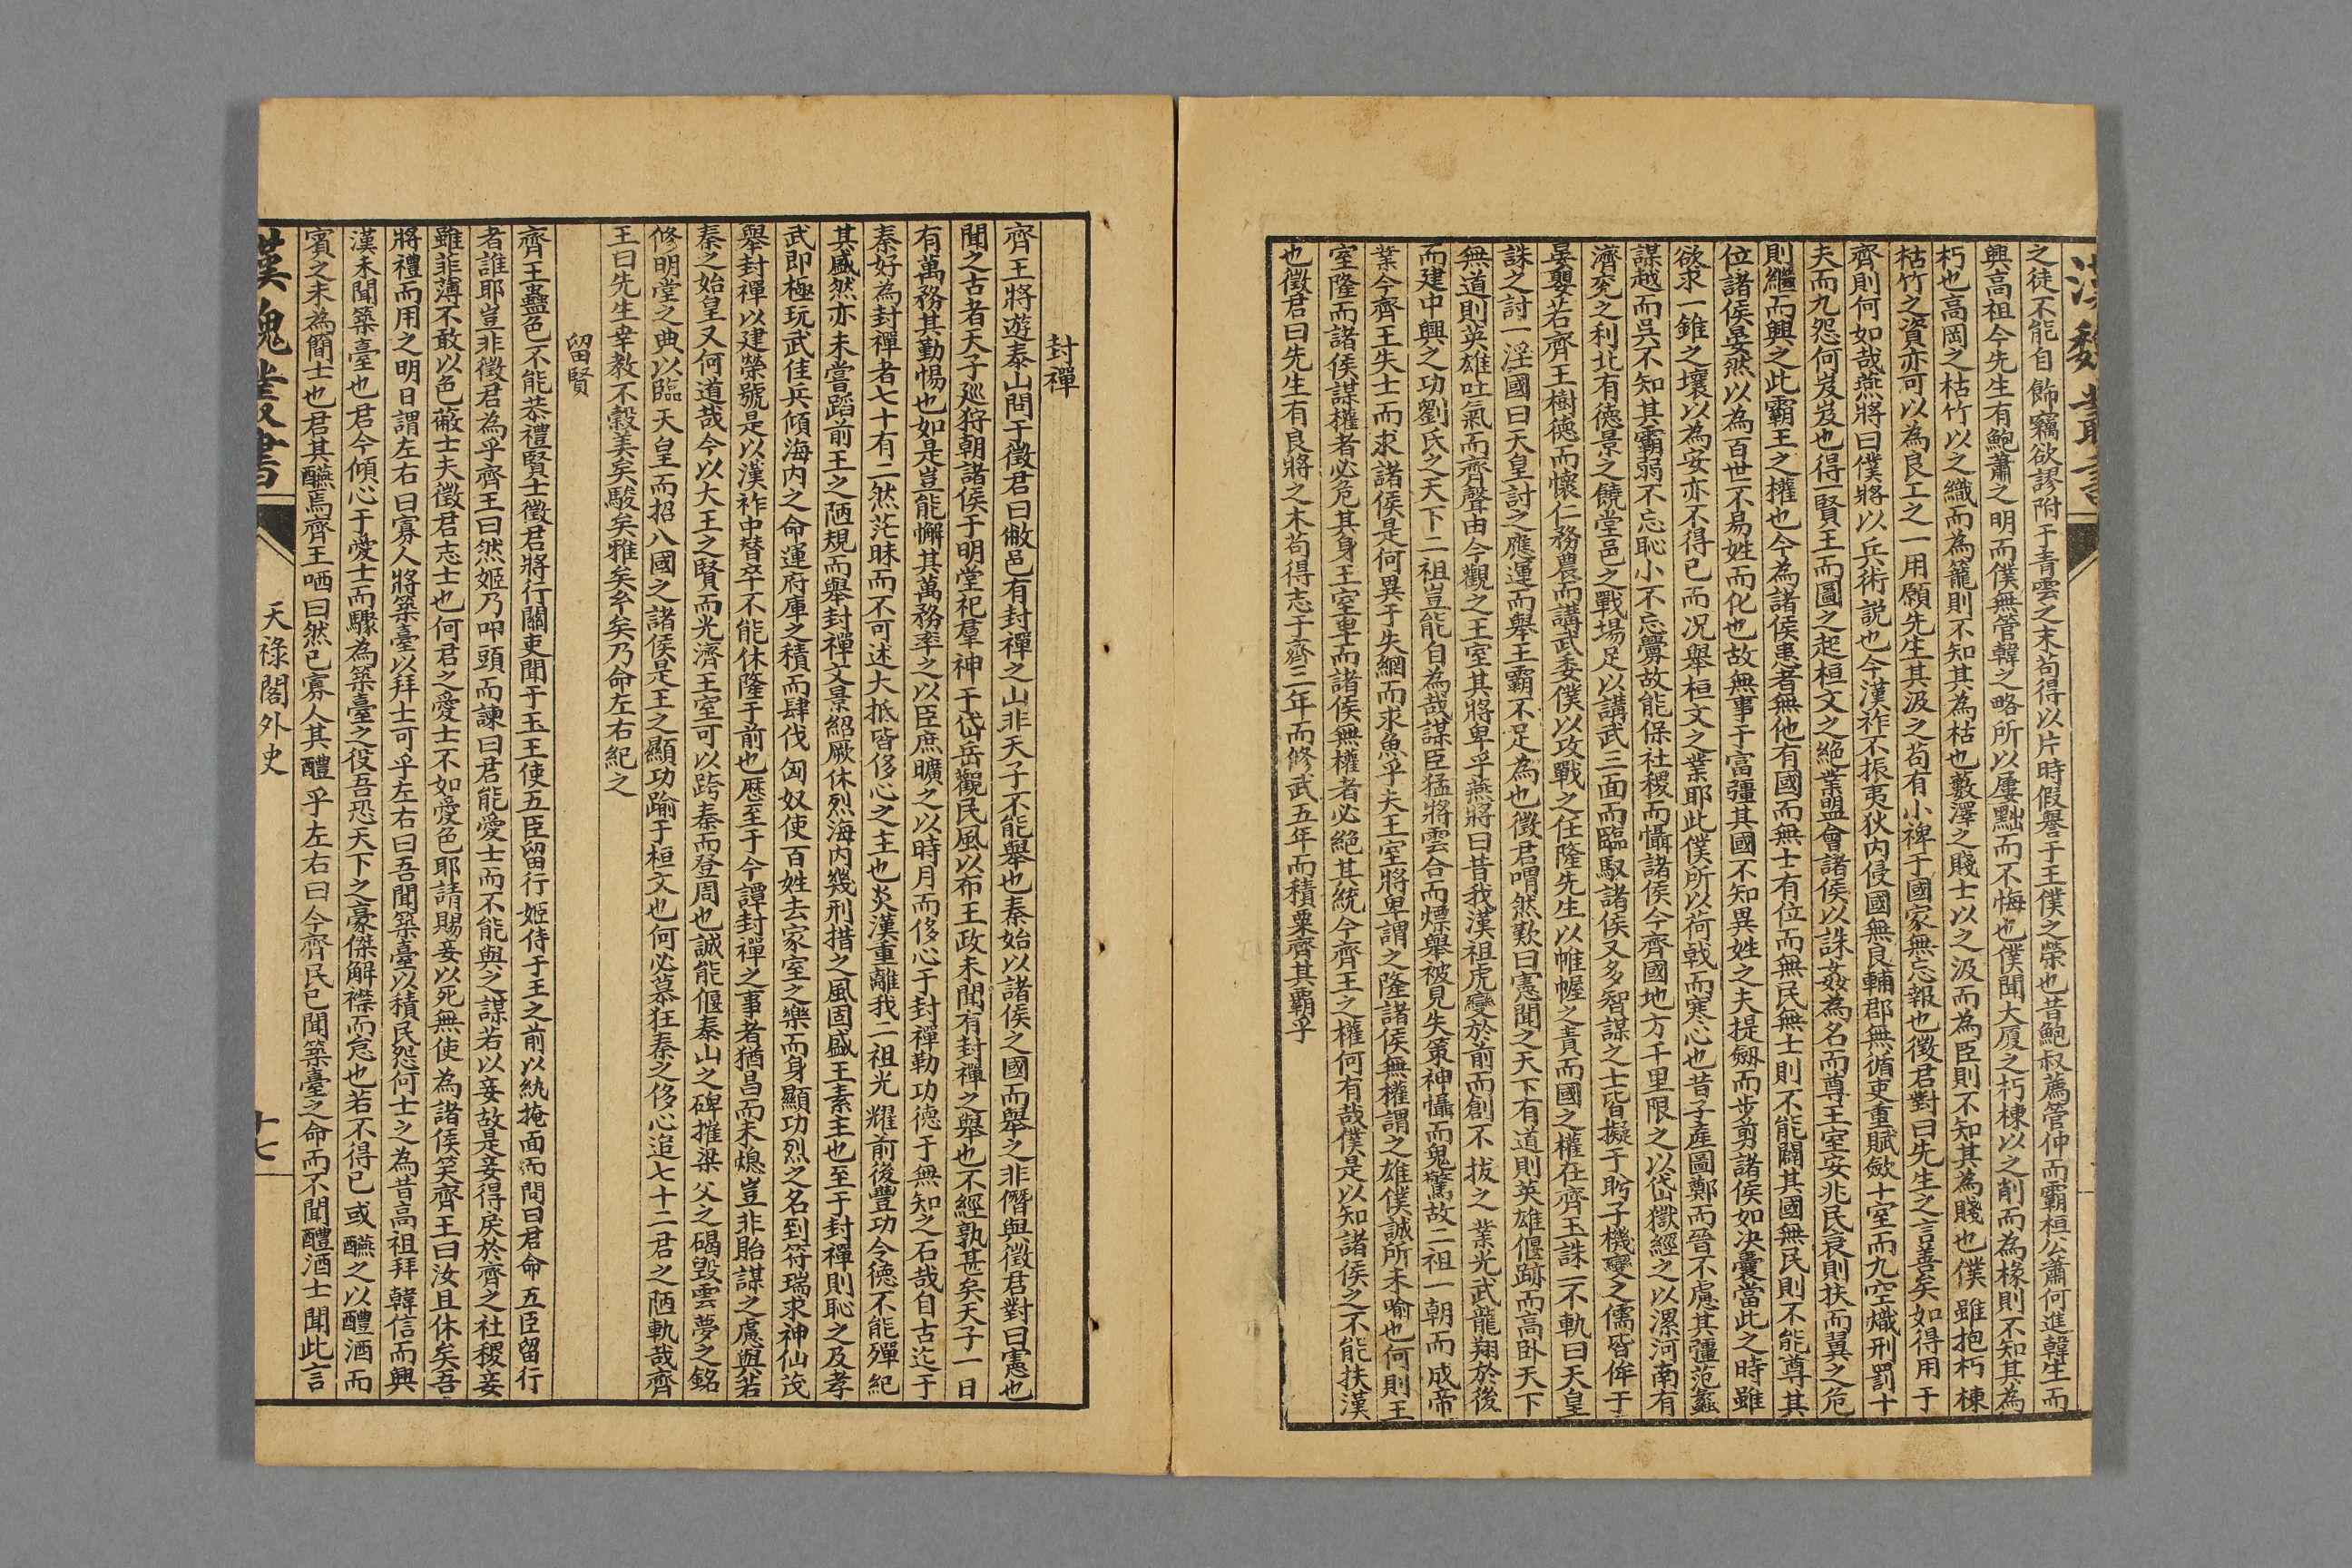 漢魏叢書
之徒不能自飾竊欲謬附于青雲之末苟得以片時假譽于王僕之榮也昔鮑叔薦管仲而霸桓公蕭何進韓生而
興高祖今先生有鮑蕭之明而僕無管韓之略所以屢黜而不悔也僕聞大厦之朽棟以之削而為椽則不知其為
朽也高岡之枯竹以之織而為籠則不知其為枯也藪澤之賤士以之汲而為臣則不知其為賤也僕雖抱朽棟
枯竹之資亦可以為良工之一用願先生其汲之苟有小禆于國家無忘報也徵君對曰先生之言善矣如得用于
齊則何如哉燕將曰僕將以兵術説也今漢祚不振夷狄内侵國無良輔郡無循吏重賦斂十室而九空熾刑罰十
夫而九怨何岌岌也得一賢王而圖之起桓文之絶業盟會諸侯以誅姦為名而尊王室安兆民衰則扶而翼之危
則繼而興之此霸王之權也今為諸侯患者無他有國而無士有位而無民無士則不能闢其國無民則不能尊其
位諸侯晏然以為百世不易姓而化也故無事于富彊其國不知異姓之夫提劔而步剪諸侯如决囊當此之時雖
欲求一錐之壤以為安亦不得已而况舉桓文之業耶此僕所以荷戟而寒心也昔子產圖鄭而晉不慮其彊范蠡
謀越而吳不知其霸弱不忘恥小不忘讐故能保社稷而懾諸侯今齊國地方千里限之以岱嶽經之以漯河南有
濟兖之利北有德景之饒堂邑之戰場足以講武三面而臨馭諸侯又多智謀之士皆擬于肹子機變之儒皆侔于
晏嬰若齊王樹德而懷仁務農而講武委僕以攻戰之任隆先生以帷幄之責而國之權在齊王誅一不軌曰天皇
誅之討一淫國曰天皇討之應運而舉王霸不足為也徵君喟然歎曰憲聞之天下有道則英雄偃跡而高卧天下
無道則英雄吐氣而齊聲由今觀之王室其將卑乎燕將曰昔我漢祖虎變於前而創不拔之業光武龍翔於後
而建中興之功劉氏之天下二祖豈能自為哉謀臣猛將雲合而熛舉被見失策神懾而鬼驚故二祖一朝而成帝
業今齊王失士而求諸侯是何異于失網而求魚乎夫王室將卑謂之隆諸侯無權謂之雄僕誠所未喻也何則王
室隆而諸侯謀權者必危其身王室卑而諸侯無權者必絕其統今齊王之權何有哉僕是以知諸侯之不能扶漢
也徵君曰先生有良將之木苟得志于齊三年而修武五年而積粟齊其霸乎
封禪
齊王將遊泰山問于徵君曰敝邑有封禪之山非天子不能舉也秦始以諸侯之國而舉之非僭與徵君對曰憲也
聞之古者天子廵狩朝諸侯于明堂祀羣神于岱岳觀民風以布王政未聞有封禪之舉也不經孰甚矣天子一日
有萬務其勤惕也如是豈能懈其萬務率之以臣庶曠之以時月而侈心于封禪勒功德于無知之石哉自古迄于
秦好為封禪者七十有二然茫昧而不可述大抵皆侈心之主也炎漢重離我二祖光耀前後豐功令德不能殫紀
其盛然亦未嘗蹈前王之陋規而舉封禪文景紹厥休烈海内幾刑措之風固盛王素主也至于封禪則恥之及孝
武即極玩武佳兵傾海内之命運府庫之積而肆伐匈奴使百姓去家室之樂而身顯功烈之名到符瑞求神仙茂
舉封禪以建榮號是以漢祚中替卒不能休隆于前也歷至于今譚封禪之事者猶昌而未熄豈非貽謀之慮與若
秦之始皇又何道哉今以大王之賢而光濟王室可以跨秦而登周也誠能偃秦山之碑摧梁父之碣毀雲夢之銘
修明堂之典以臨天皇而招八國之諸侯是王之顯功踰于桓文也何必慕狂秦之侈心追七十二君之陋軌哉齊
王曰先生幸教不穀美矣駿矣雅矣牟矣乃命左右紀之
留賢
齊王蠱色不能恭禮賢士徵君將行關吏聞于王王使五臣留行姬侍于王之前以紈掩面而問曰君命五臣留行
者誰耶豈非徵君為乎齊王曰然姬乃叩頭而諫曰君能愛士而不能與之謀若以妾故是妾得戾於齊之社稷妾
雖菲薄不敢以色蔽士夫徵君志士也何君之愛士不如愛色耶請賜妾以死無使為諸侯笑齊王曰汝且休矣吾
將禮而用之明日謂左右曰寡人將築臺以拜士可乎左右曰吾聞築臺以積民怨何士之為昔高祖拜韓信而興
漢未聞築臺也君今傾心于愛士而驟為築臺之役吾恐天下之豪傑解襟而怠也若不得已或醼之以醴酒而
賓之未為簡士也君其醼焉齊王哂曰然已寡人其醴乎左右曰今齊民已聞築臺之命而不聞醴酒士聞此言
漢魏叢書
天祿閣外史
十七